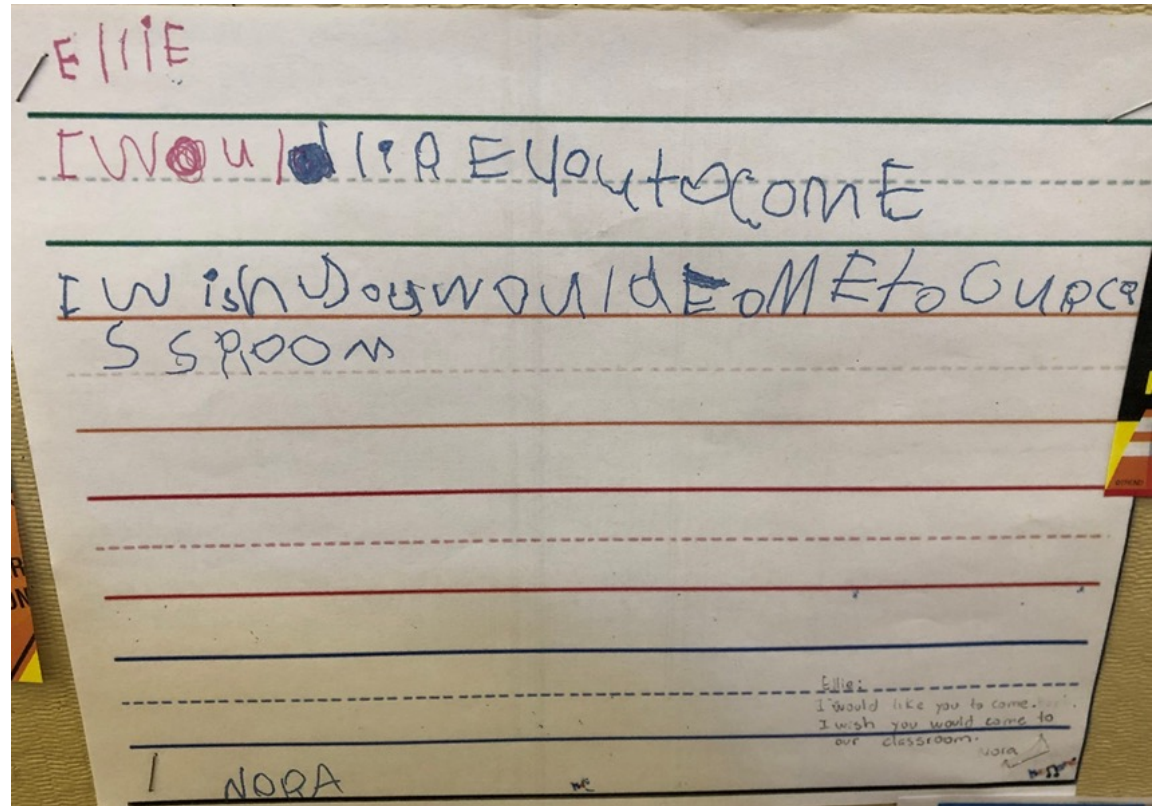 EllIE
I Would lIkE you to comE
I wish you would comE to Our cla
SSRooM
Ellie:
I would like you to come.
I wish you would come to
our classroom.
Nora
NORA